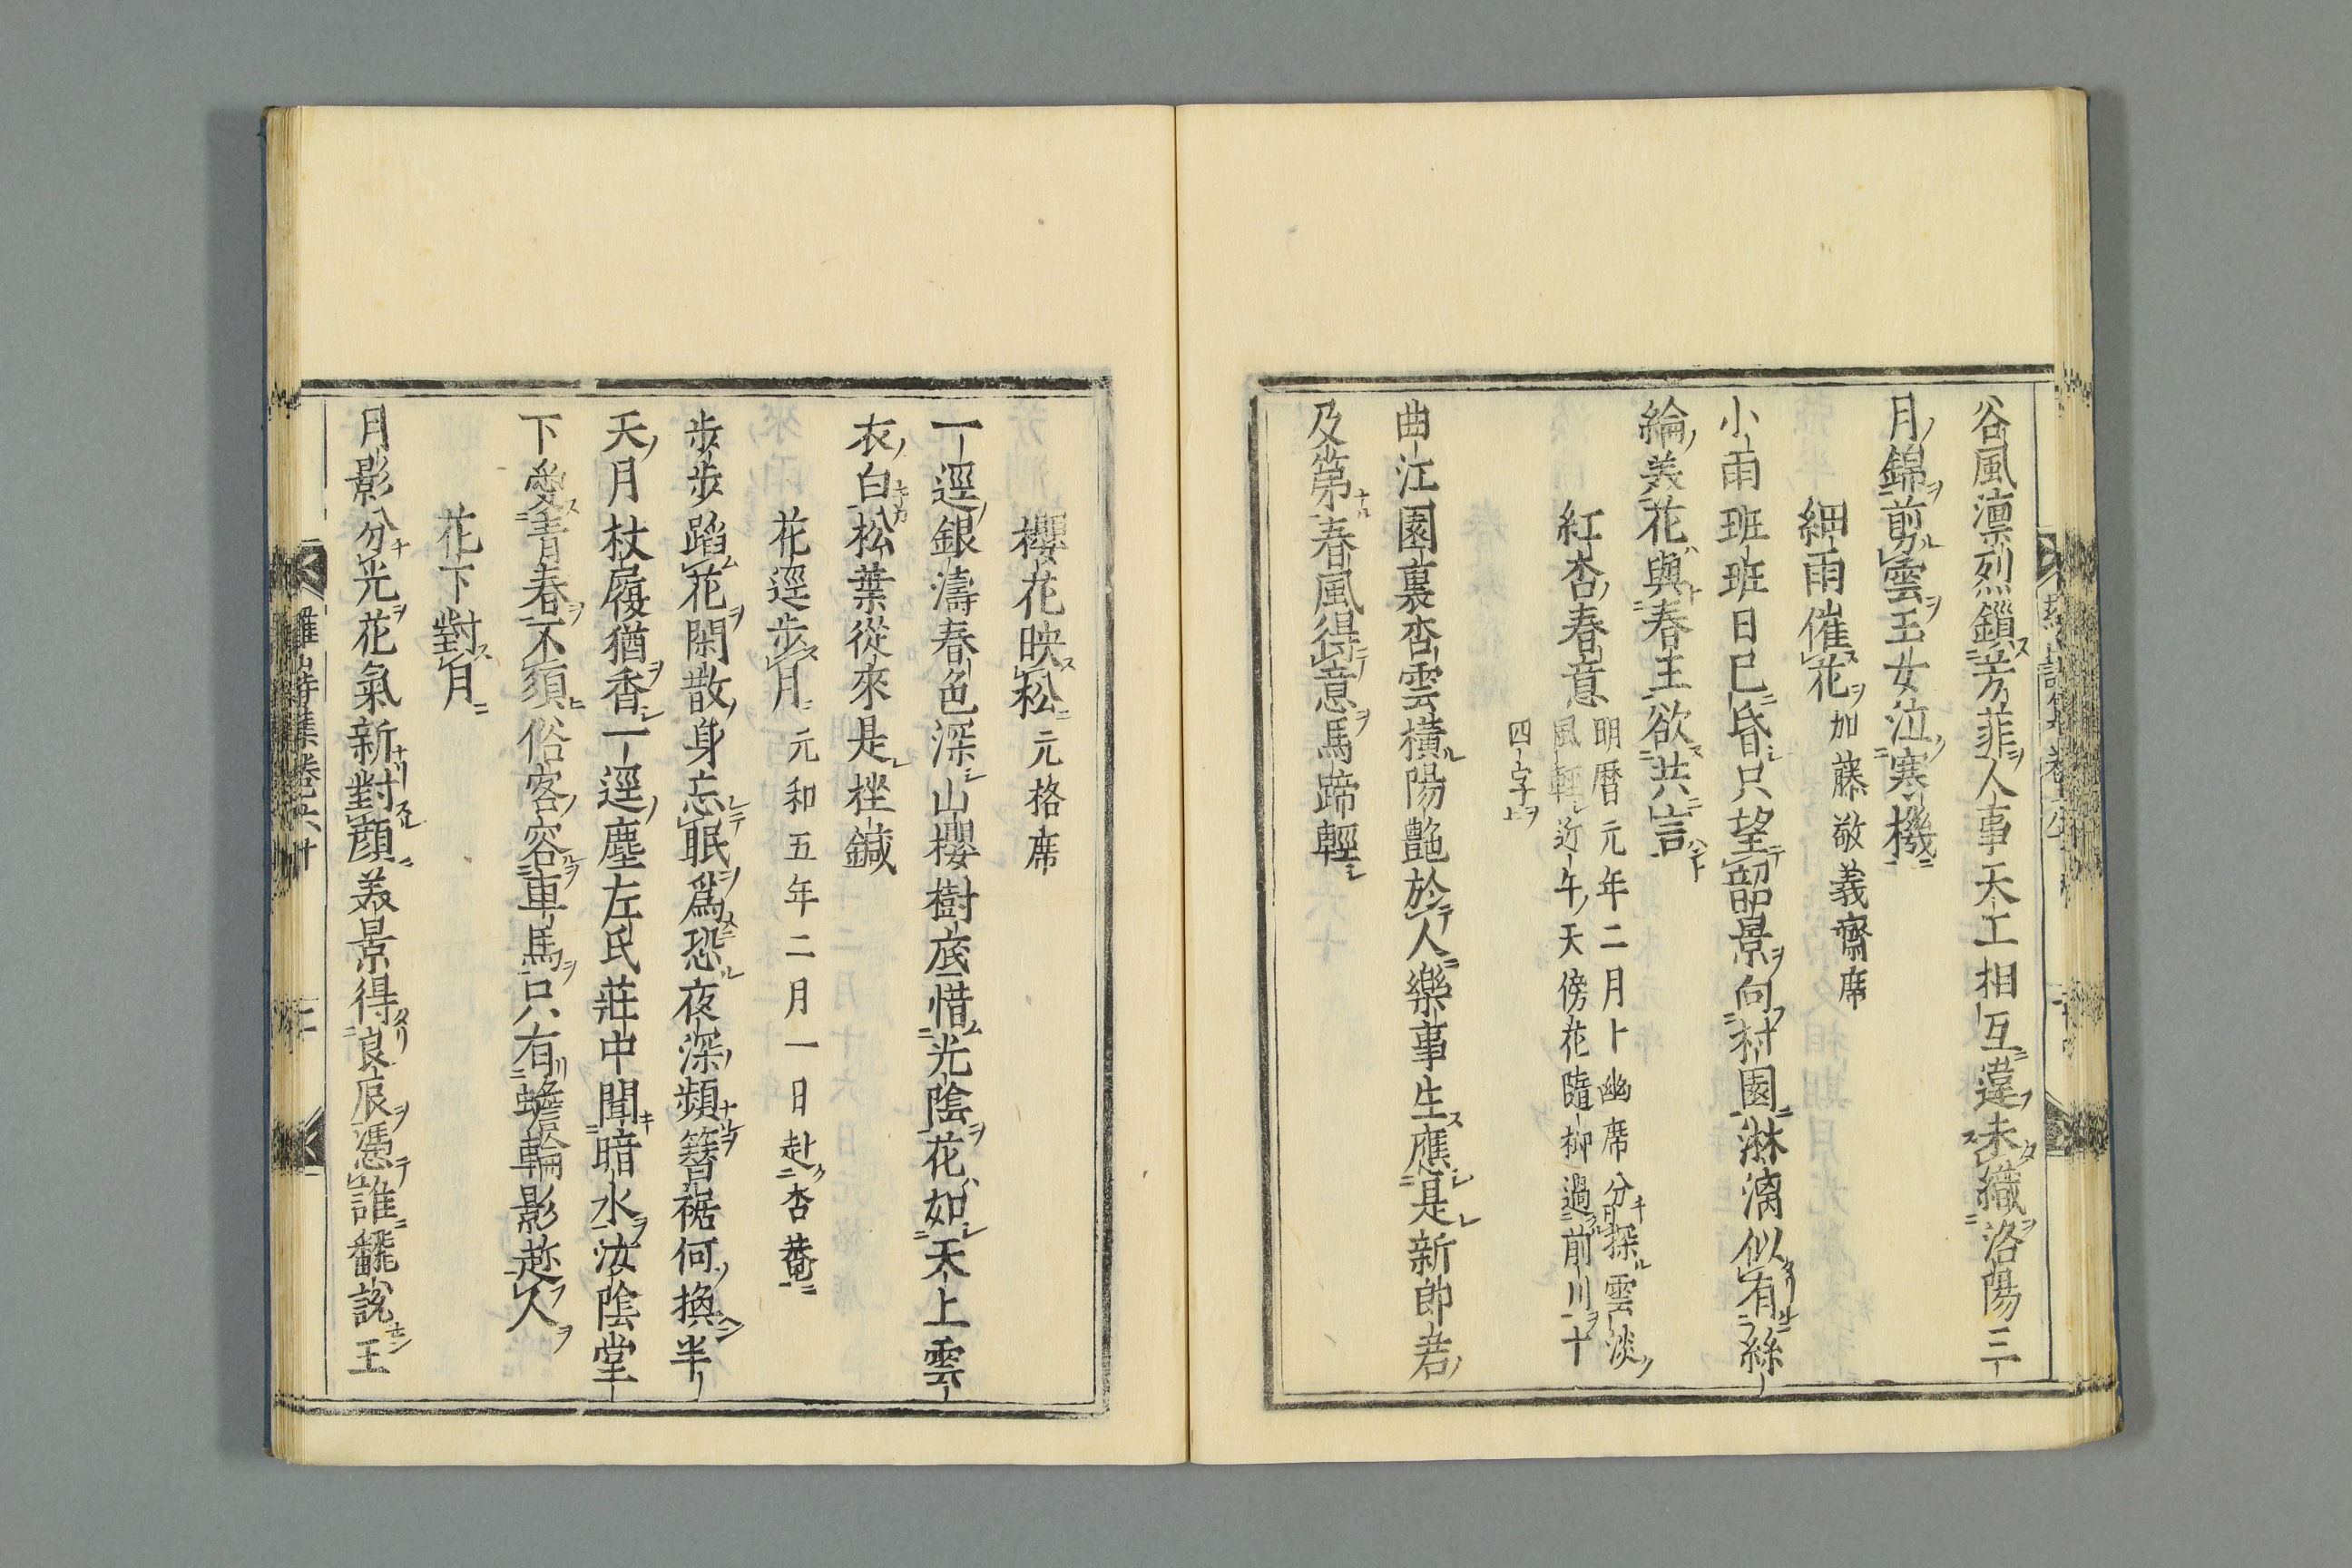 谷風凛烈鎖芳菲人事天工相互違未織洛陽三
月錦剪雲玉女泣寒機
細雨催花加藤敬義齋席
小雨班班日已昏只望韶景向村園淋漓似有絲
綸美花與春王欲共言
紅杏春意明曆元年二月卜幽席分探雲淡
風輕近午天傍花隨柳過前川十
四字
曲江園裏杏雲橫陽艶於人樂事生應是新郎君
及第春風得意馬蹄輕
櫻花映松元格席
一逕銀濤春色深山櫻樹底惜光陰花如天上雲
衣白松葉從來是挫鍼
花逕步月元和五年二月一日赴杏菴
步步蹈花閑散身忘眠爲恐夜深頻簪裾何換半
天月杖履猶香一逕塵左氏莊中聞暗水汝陰堂
下愛青春不須俗客容車馬只有蟾輪影趂人
花下對月
月影分光花氣新對顏美景得良辰憑誰飜說王
羅山詩集卷六十